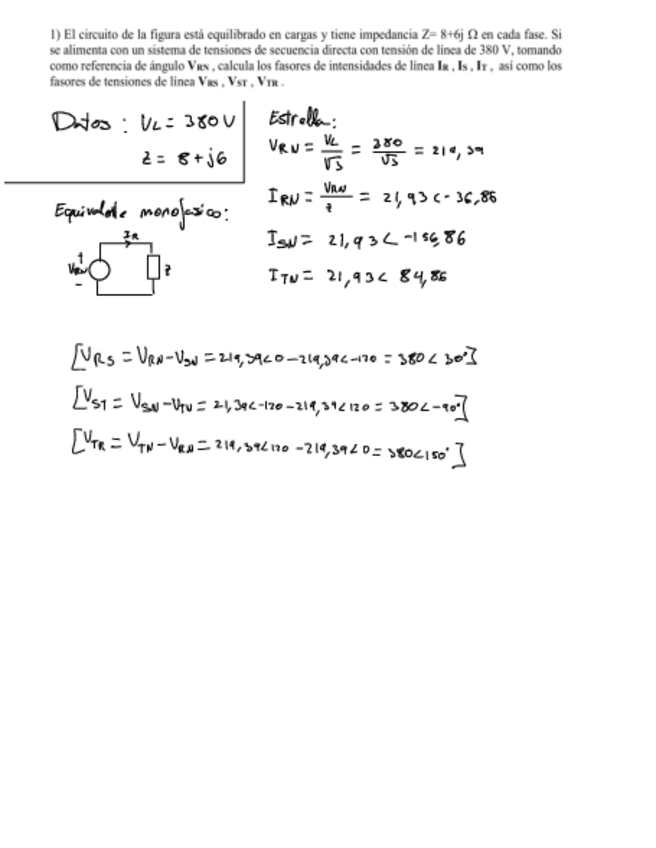 1) El circuito de la figura está equilibrado en cargas y tiene impedancia Z= 8+6j Ω en cada fase. Si
se alimenta con un sistema de tensiones de secuencia directa con tensión de línea de 380 V, tomando
como referencia de ángulo VRN , calcula los fasores de intensidades de línea IR , IS , IT , así como los
fasores de tensiones de línea VRS , VST , VTR .
Datos : VL = 380 V
Z = 8 + j6
Estrella:
VRN = VL/√3 = 380/√3 = 219,39
IRN = VRN/Z = 21,93 < -36,86
ISN = 21,93 < -156,86
ITN = 21,93 < 84,86
Equivalente monofasico:
IR
VRN
+
-
Z
[VRS = VRN - VSN = 219,39<0 - 219,39<-120 = 380 < 30°]
[VST = VSN - VTN = 21,39<-120 - 219,39<120 = 380<-90°]
[VTR = VTN - VRN = 219,39<120 - 219,39<0 = 380<150°]